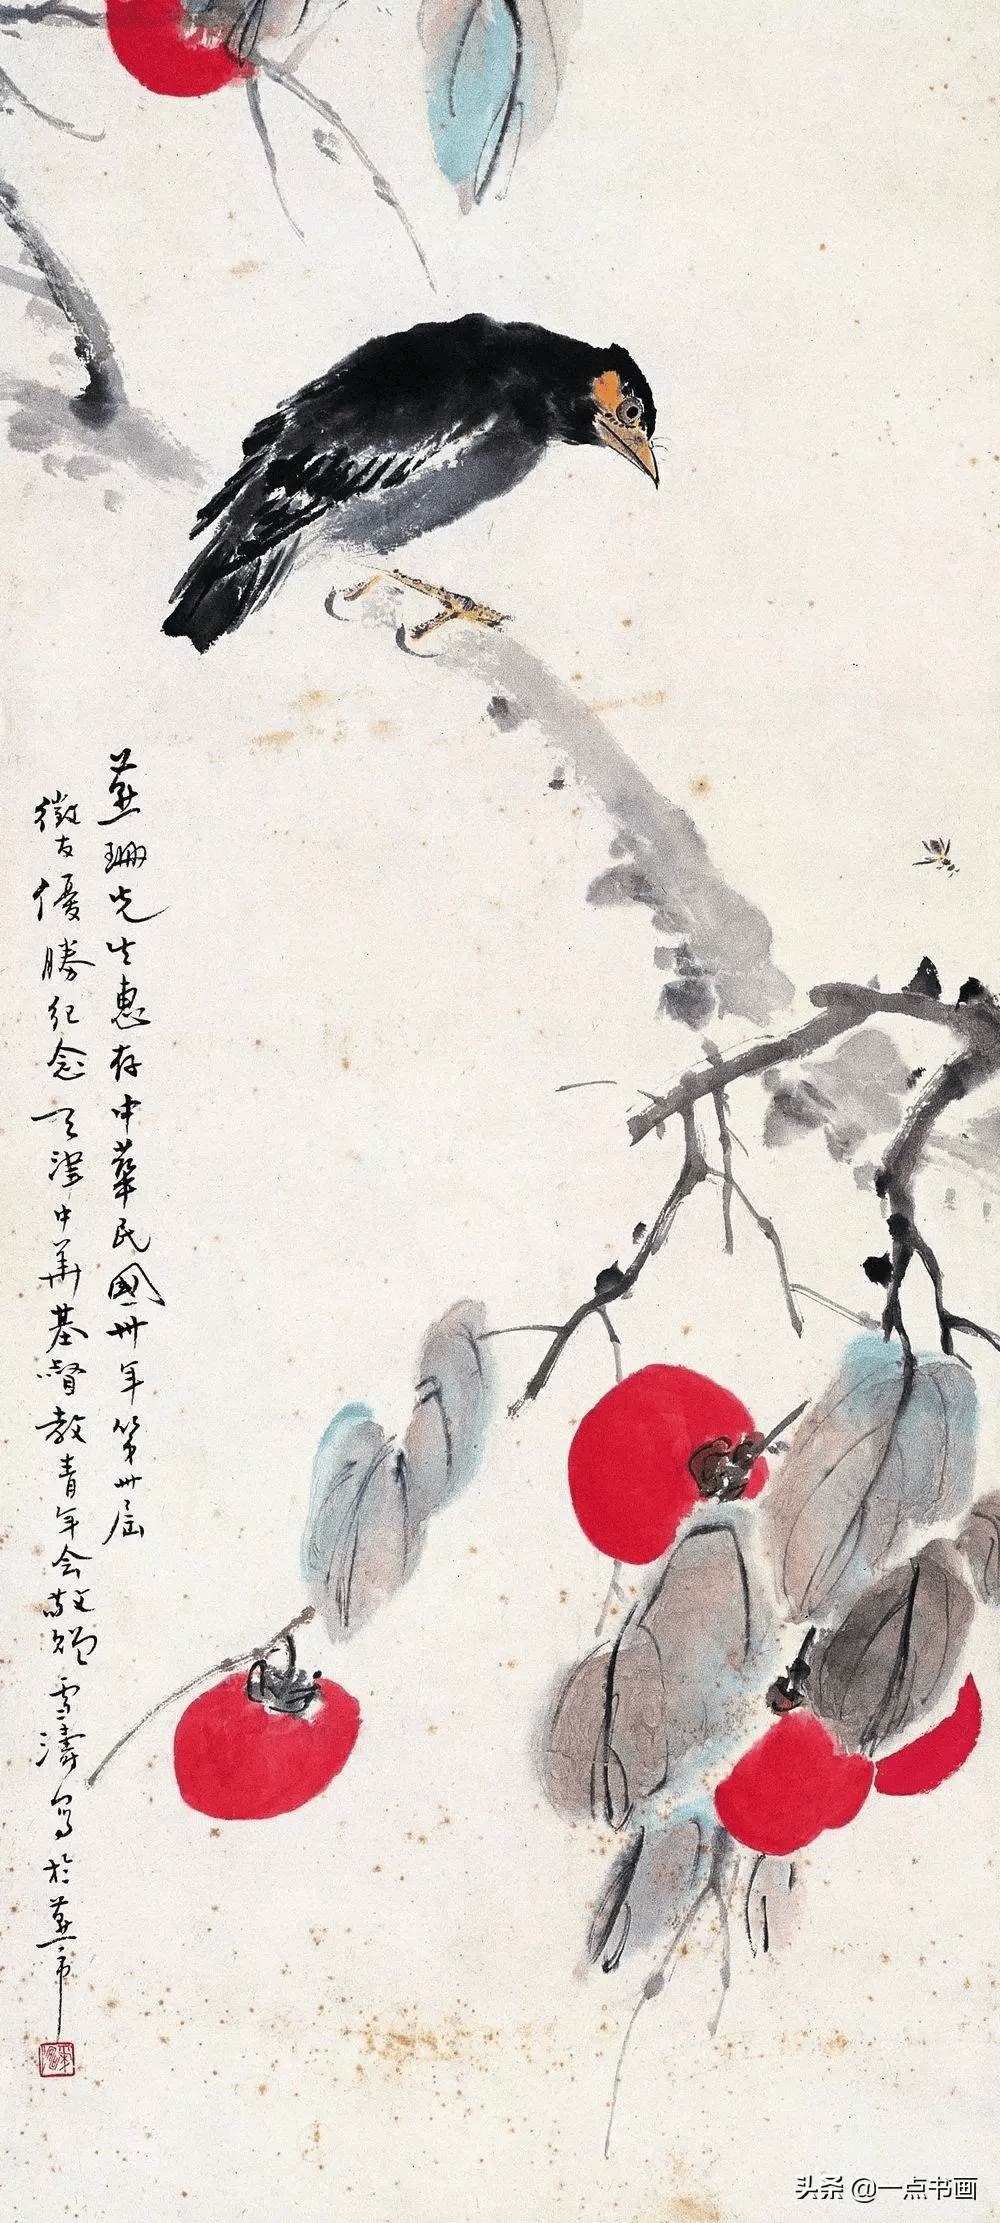 燕珊先生惠存中華民國卅年第卅屆
徵友優勝紀念天津中華基督教青年会敬贈雪濤寫於燕市
头条 @一点书画